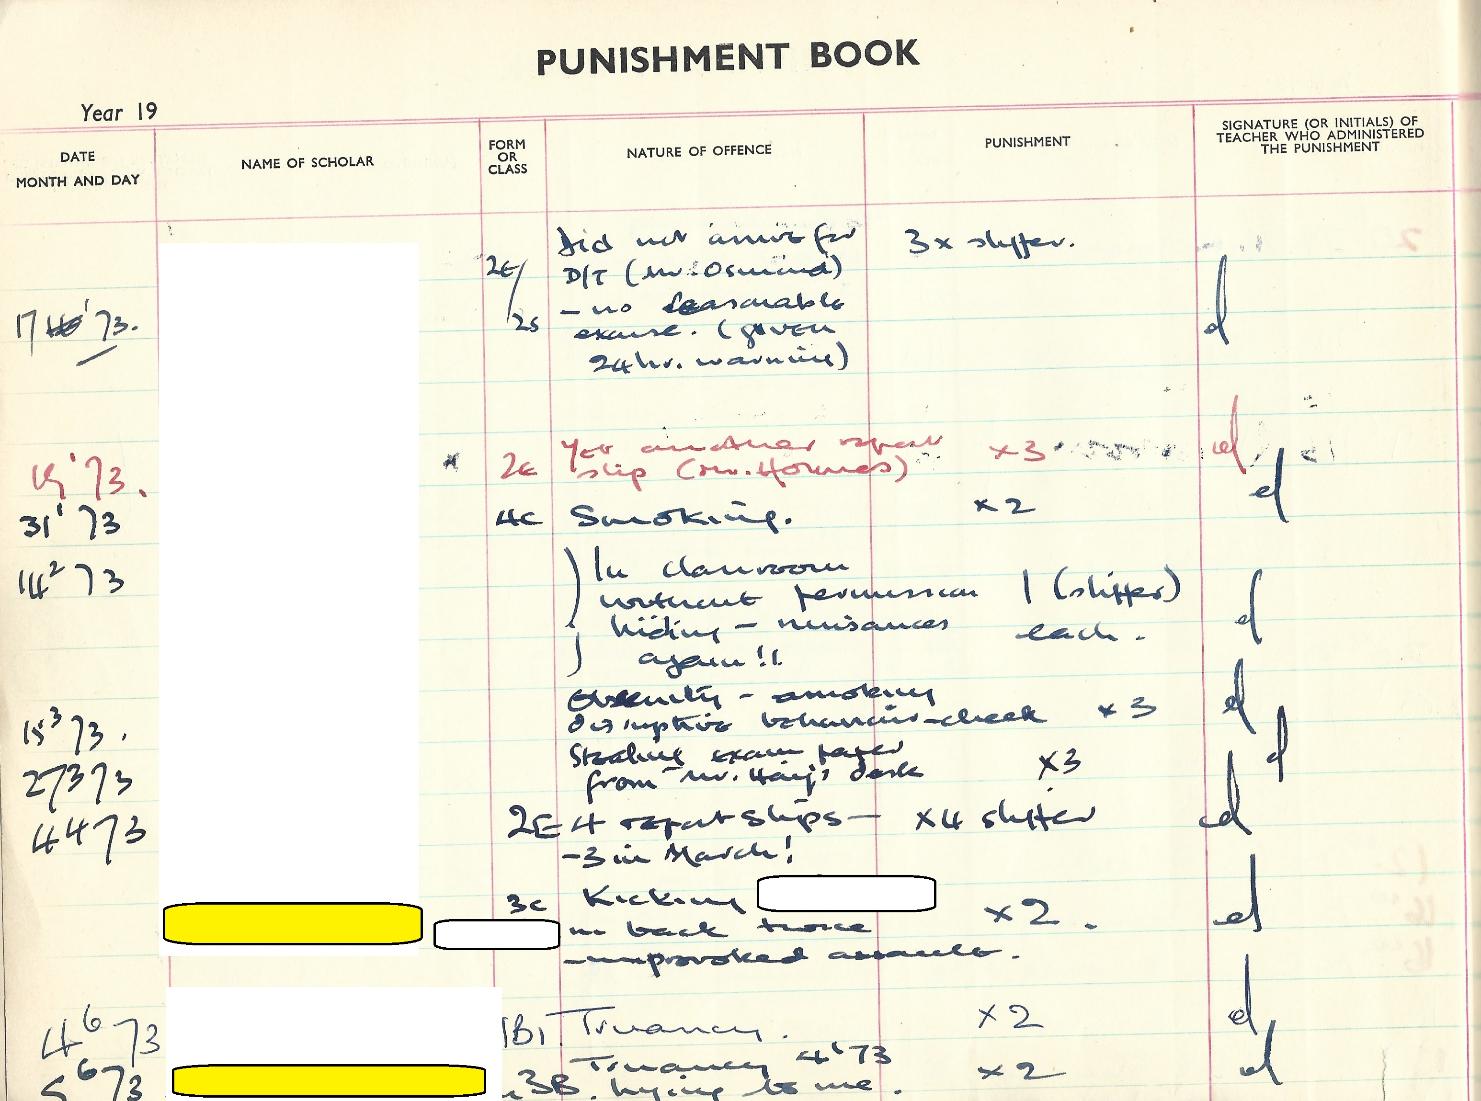 PUNISHMENT BOOK
Year 19
DATE
MONTH AND DAY
NAME OF SCHOLAR
FORM
OR
CLASS
NATURE OF OFFENCE
PUNISHMENT
SIGNATURE (OR INITIALS) OF
TEACHER WHO ADMINISTERED
THE PUNISHMENT
17 1 73.
2E/
2S
Did not arrive for
D/T (Mr. Osmind)
- no reasonable
excuse. (given
24 hr. warning)
3x slipper.
d
19 1 73.
2E
Yet another report
slip (Mr. Holmes)
x3
d
31 1 73
4C
Smoking.
x2
d
14 2 73
In classroom
without permission
hiding - nuisances
again!!
1 (slipper)
each.
d
15 3 73.
Obscenity - smoking
disruptive behaviour - cheek
x3
d
27 3 73
Stealing exam paper
from Mr. desk
x3
d
4 4 73
2E
4 report slips -
- 3 in March!
x4 slipper
d
3C
Kicking
in back twice
- unprovoked assault.
x2.
d
4 6 73
1B1
Truancy.
x2
d
5 6 73
3B
Truancy 4 6 73
lying to me.
x2
d